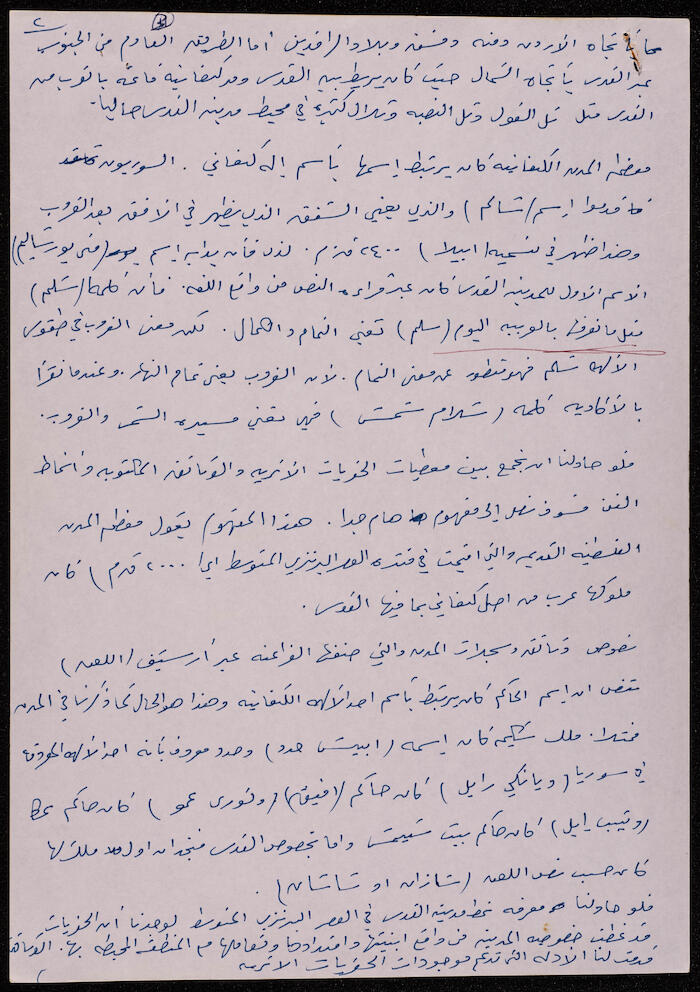 ٢
تجاه الأردن ومنه ودمشق وبلاد الرافدين أما الطريق القادم من الجنوب
عبر القدس باتجاه الشمال حيث كان يربط بين القدس ومدن كنعانية قائمة بالقرب من
القدس مثل تل الفول وتل النصبه وتلال كثيره في محيط مدينة القدس حاليا.
معظم المدن الكنعانية كان يرتبط اسمها باسم إله كنعاني. السوريون
قدموا إسم (شالم) والذي يعني الشفق الذي يظهر في الافق بعد الغروب
وهذا ظهر في تسمية (ايبلا) ٢٤٠٠ ق.م. لذا فأن بداية إسم
الاسم الاول للمدينه القدس كان عبر قراءة النص من واقع اللغه. فأن كلمة (شلم)
مثل ما نعرفها بالعربيه اليوم (سلم) تعني التمام والكمال. لكن معنى الغروب في طقوس
الألهه شلم فهو متطور عن معنى التمام. لأن الغروب يعني تمام النهار. وعندما نقرأ
بالأكاديه كلمة (شلام شمش) فهي تعني مسيرة الشمس والغروب.
فلو حاولنا ان نجمع بين معطيات الحفريات الأثريه والوثائق المكتوبه وأنماط
الفن فسوف نصل إلى مفهوم هام جدا. هذا المفهوم يقول معظم المدن
الفلسطينه القديمه والتي اقيمت في فتره العصر البرنزي المتوسط اي (٢٠٠٠ ق.م) كان
ملوكها عرب من اصل كنعاني بما فيها القدس.
نصوص وثائق وسجلات المدن والتي صنفها الفراعنه عبر أرشيف (اللعن)
تقص ان إسم الحاكم كان يرتبط بأسم احد الألهه الكنعانيه وهذا هو الحال كما ذكرنا في المدن
فمثلا. ملك شكيم كان إسمه (ابيش حدد) وحدد معروف بأنه احد الألهه المعروفة
في سوريا (ويانكي رايل) كان حاكم (افيق) (وثوري عمو) كان حاكم عكا
كان حاكم بيت شيمش واما بخصوص القدس فنجد ان اول ملك لها
كان حسب نص اللعن (شازان او شاشان).
فلو حاولنا معرفة نمط مدينة القدس في العصر البرنزي المتوسط لوجدنا أن الحفريات
قد غطت خصوصه المدينه من واقع ابنيتها وامتدادها وتعاملها مع المنطقه المحيطه بها.
قدمت لنا الأدله التي تدعم موجودات الحفريات الأثريه